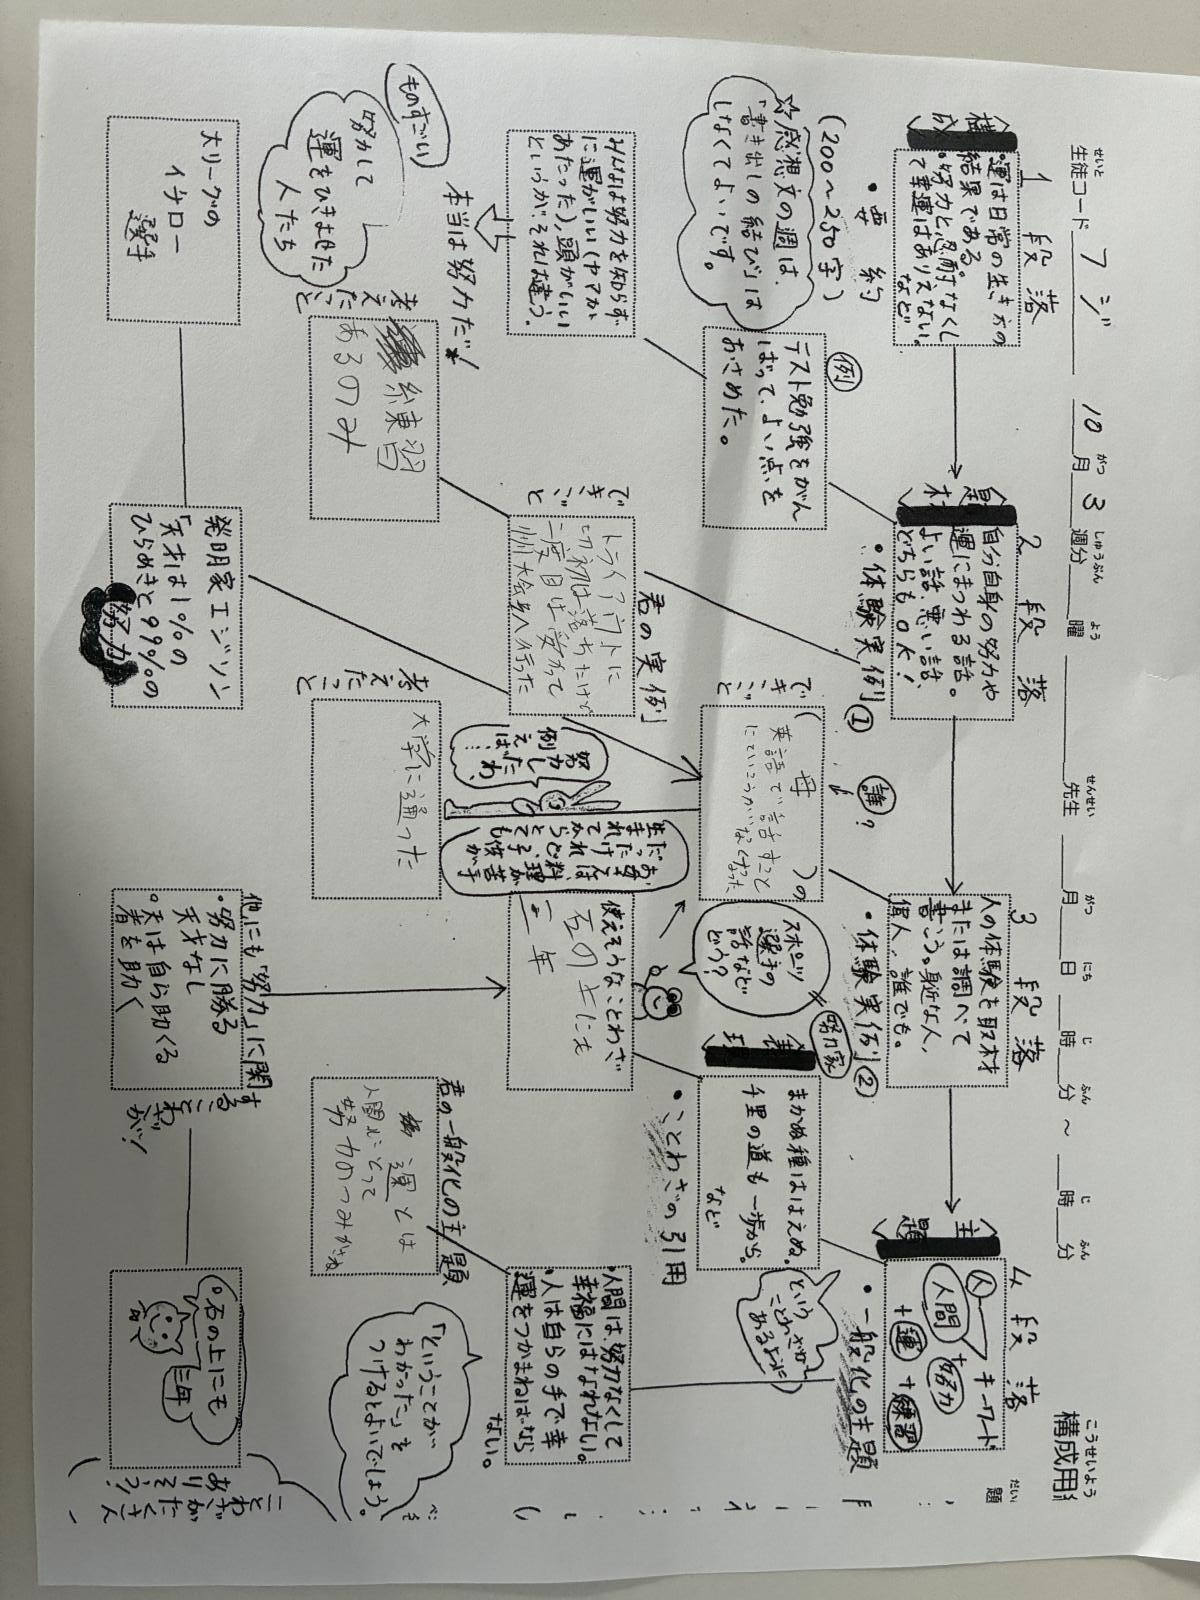 構成用
題
生徒コード フジ 10月3週分 曜 先生 月 日 時 分 ～ 時 分
構成
1段落
・運は日常の生き方の
結果である。
・努力と忍耐なくし
て幸運はありえない。
など
・要約
(200〜250字)
☆感想文の週は、
「書き出しの結び」は
しなくてよいです。
みんなは努力を知らず
に運がいい(ヤマが
あたった)、頭がいい
というが、それは違う。
本当は努力だ!
ものすごい
努力して
運をひきよせた
人たち
大リーグの
イチロー
選手
発明家エジソン
「天才は1%の
ひらめきと99%の
努力
題材
2段落
自分自身の努力や
運にまつわる話。
よい話、悪い話、
どちらもOK!
・体験実例①
例
テスト勉強をがん
ばって、よい点を
おさめた。
君の実例
できごと
トライアウトに
最初は落ちたけど
二度目は受かって
州大会へ行った
考えたこと
練習
あるのみ
3段落
人の体験を取材
または調べて
書こう。身近な人、
偉人、誰でも。
・体験実例②
誰?
できごと
(母)の
英語で話すこと
考えたこと
大学に通った
努力し
たわ、
例えば…
スポーツ
選手の
話など
どう?
努力家
表現
・ことわざの引用
まかぬ種ははえぬ。
千里の道も一歩から。
など
という
ことわざが
あるように
使えそうなことわざ
石の上にも
三年
他にも「努力」に関
することわざ
が!
・努力に勝る
天才なし
・天は自ら助くる
者を助く
・石の上にも
三年
ことわざが
たくさん
ありそう!
主題
4段落
キーワード
人
人間
+努力
+運
+練習
・一般化の主題
・人間は、努力なくして
幸福にはなれない。
・人は自らの手で幸
運をつかまねばなら
ない。
君の一般化の主題
運とは
人間にとって
努力のつみかさね
「ということが
わかった」を
つけるとよいでしょう。